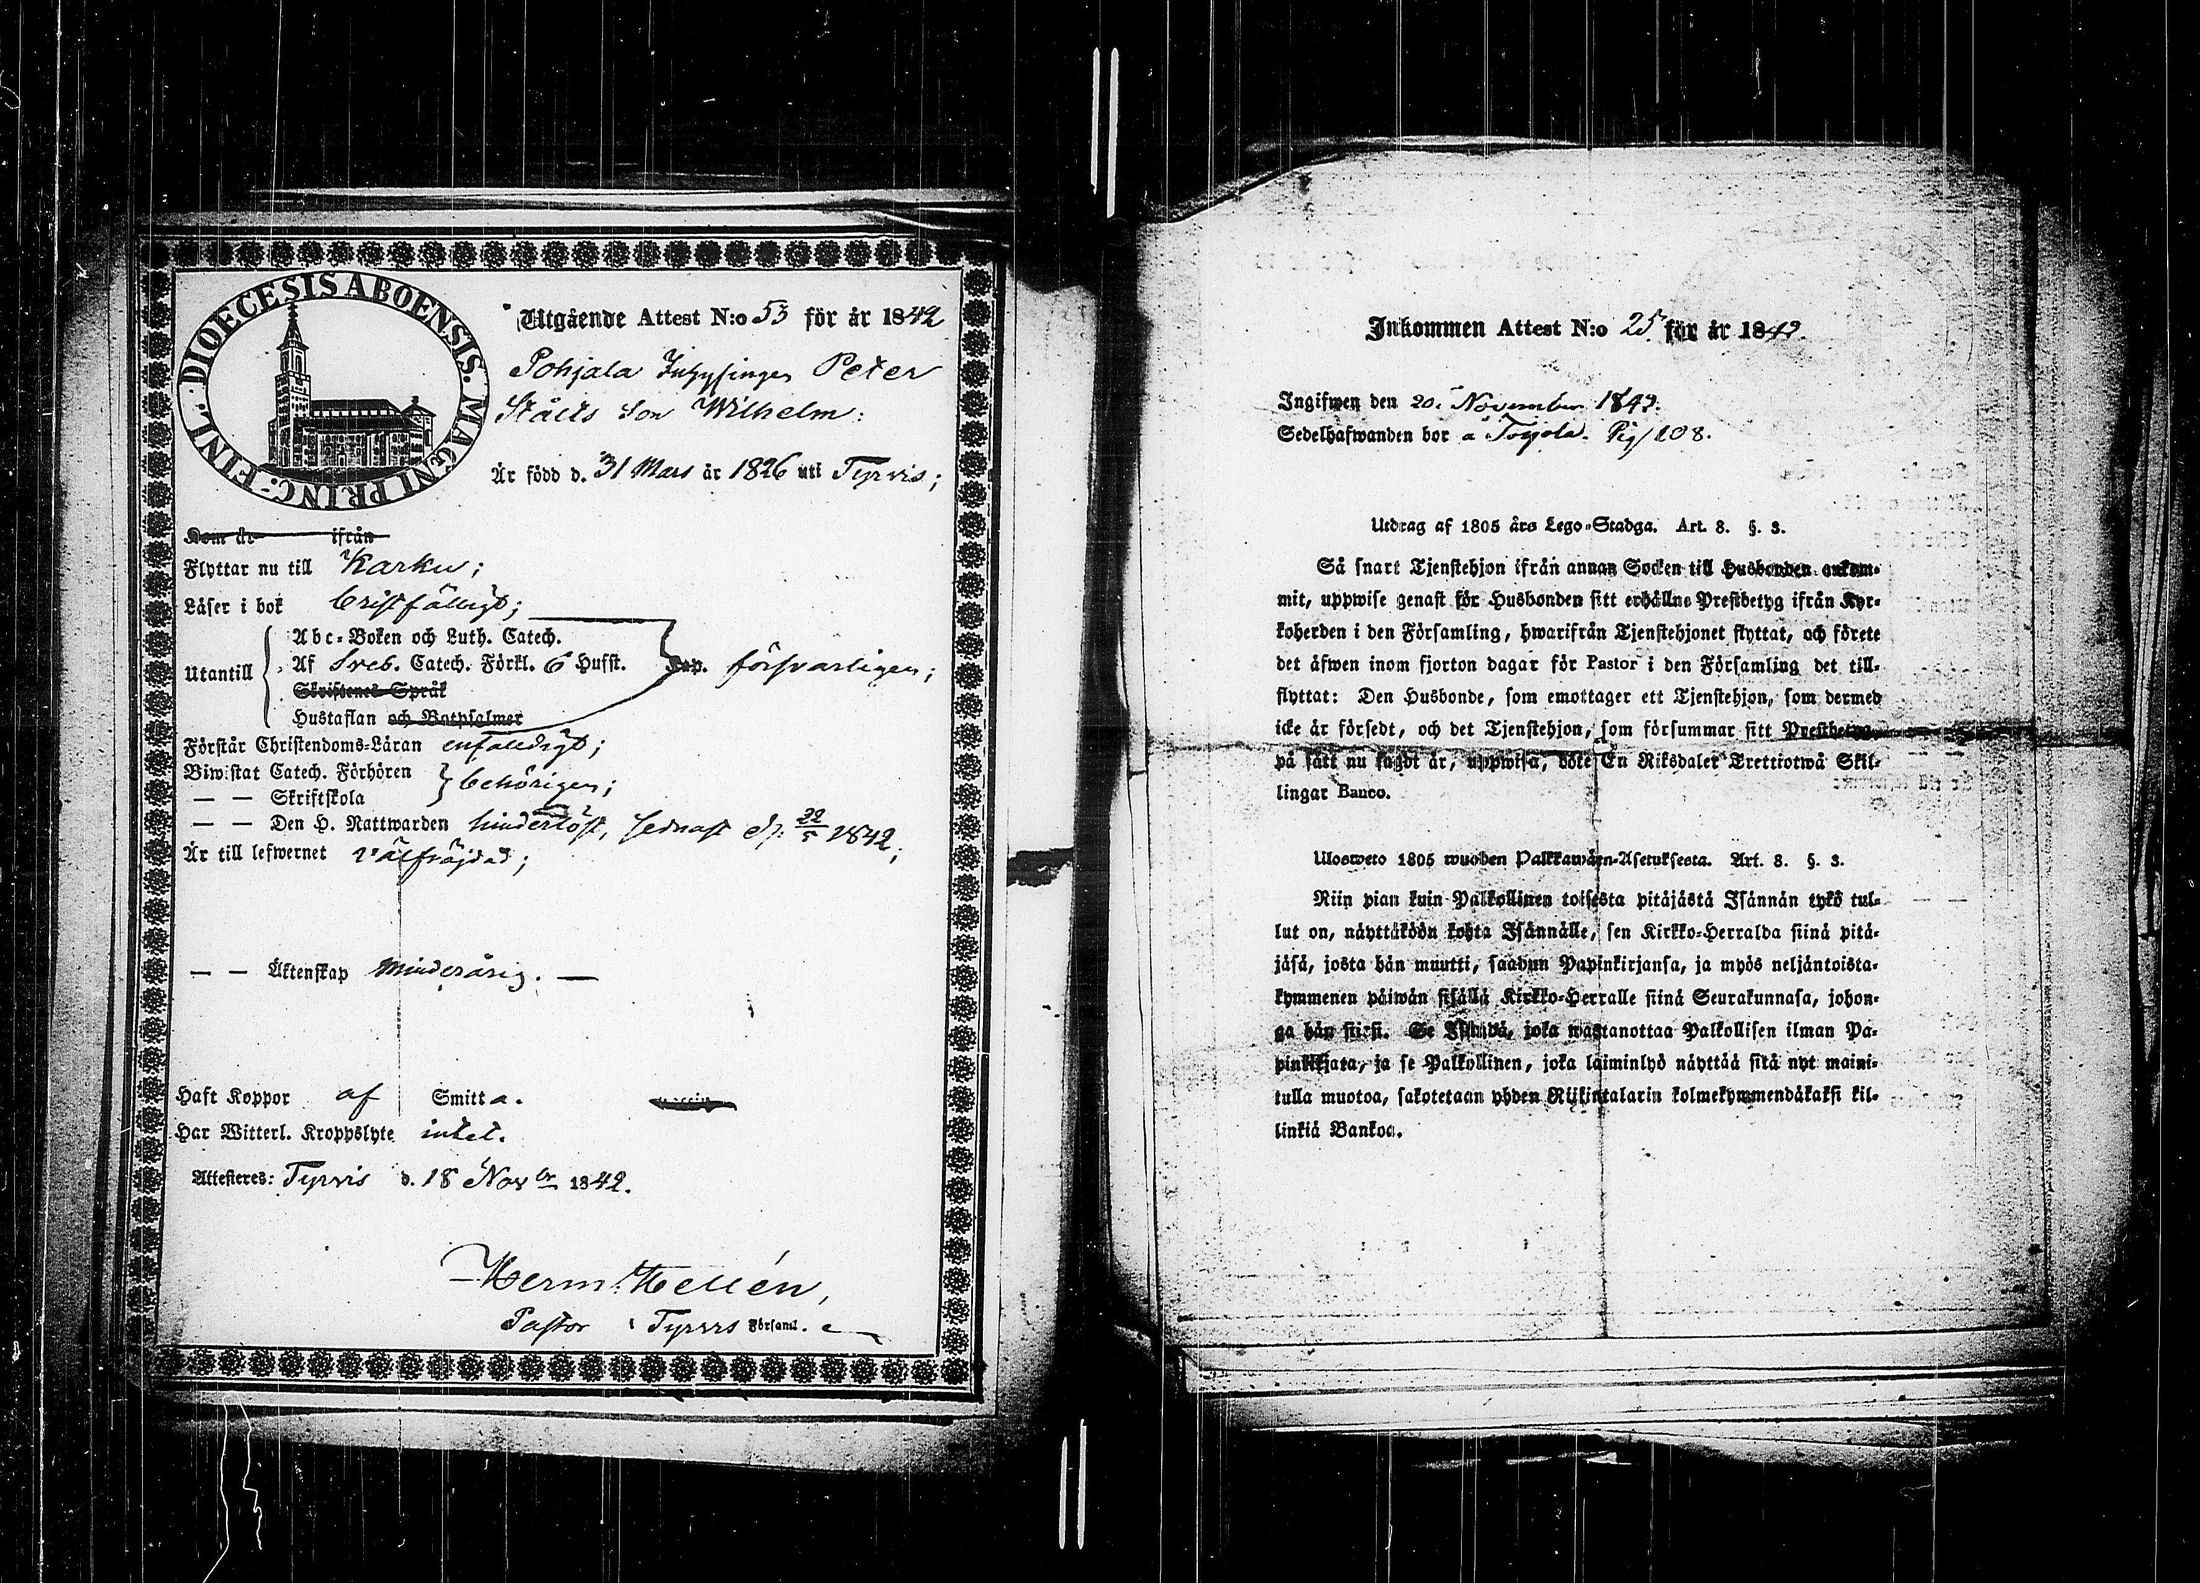 DIOECESIS ABOENSIS. MAGNI PRINC. FINL.
Utgående Attest N:o 53 för år 1842
Pohjala Inhysinges Peter
Ståles Son Wilhelm:
Är född d. 31 Mars år 1826 uti Tyrvis;
Kom år ifrån
Flyttar nu till Karku;
Läser i bok bristfälligt;
Utantill
Abc-Boken och Luth. Catech.
Af Sveb. Catech. Förkl. 6 Hufst.
försvarligen;
Skriftenes Språk
Hustaflan och Botpsalmer
Förstår Christendoms-Läran enfaldigt;
Biwistat Catech. Förhören
— — Skriftskola
behörigen;
— — Den H. Nattwarden hinderlöst, sednast d. 22/5 1842;
Är till lefwernet välfräjdad;
— — Äktenskap Minderårig. —
Haft Koppor af Smitta.
Har Witterl. Kroppslyte intet.
Attesteres: Tyrvis d. 18 Novbr 1842.
Herm. Hellén,
Pastor i Tyrvis Församl.
Inkommen Attest N:o 25 för år 1842.
Ingifwen den 20 November 1842.
Sedelhafwanden bor å Pig/108.
Utdrag af 1805 års Lego-Stadga. Art. 8. §. 3.
Så snart Tjenstehjon ifrån annan Socken till Husbonden ankom-
mit, uppwise genast för Husbonden sitt erhållne Prestbetyg ifrån Kyr-
koherden i den Församling, hwarifrån Tjenstehjonet flyttat, och förete
det äfwen inom fjorton dagar för Pastor i den Församling det till-
flyttat: Den Husbonde, som emottager ett Tjenstehjon, som dermed
icke är försedt, och det Tjenstehjon, som försummar sitt Prestbetyg,
på sätt nu sagdt är, uppwisa, böte En Riksdaler Trettiotwå Skil-
lingar Banco.
Ulosweto 1805 wuoden Palkkawäen-Asetuksesta. Art. 8. §. 3.
Niin pian kuin Palkollinen toisesta pitäjästä Isännän tykö tul-
lut on, näyttäköön kohta Isännälle, sen Kirkko-Herralda siinä pitä-
jäsä, josta hän muutti, saadun Papinkirjansa, ja myös neljäntoista-
kymmenen päiwän sisällä Kirkko-Herralle siinä Seurakunnasa, johon-
ga hän siirsi. Se Isäntä, joka wastanottaa Palkollisen ilman Pa-
pinkirjata, ja se Palkollinen, joka laiminlyö näyttää sitä nyt maini-
tulla muotoa, sakotetaan yhden Riikintalarin kolmekymmendäkaksi kil-
linkiä Bankoa.